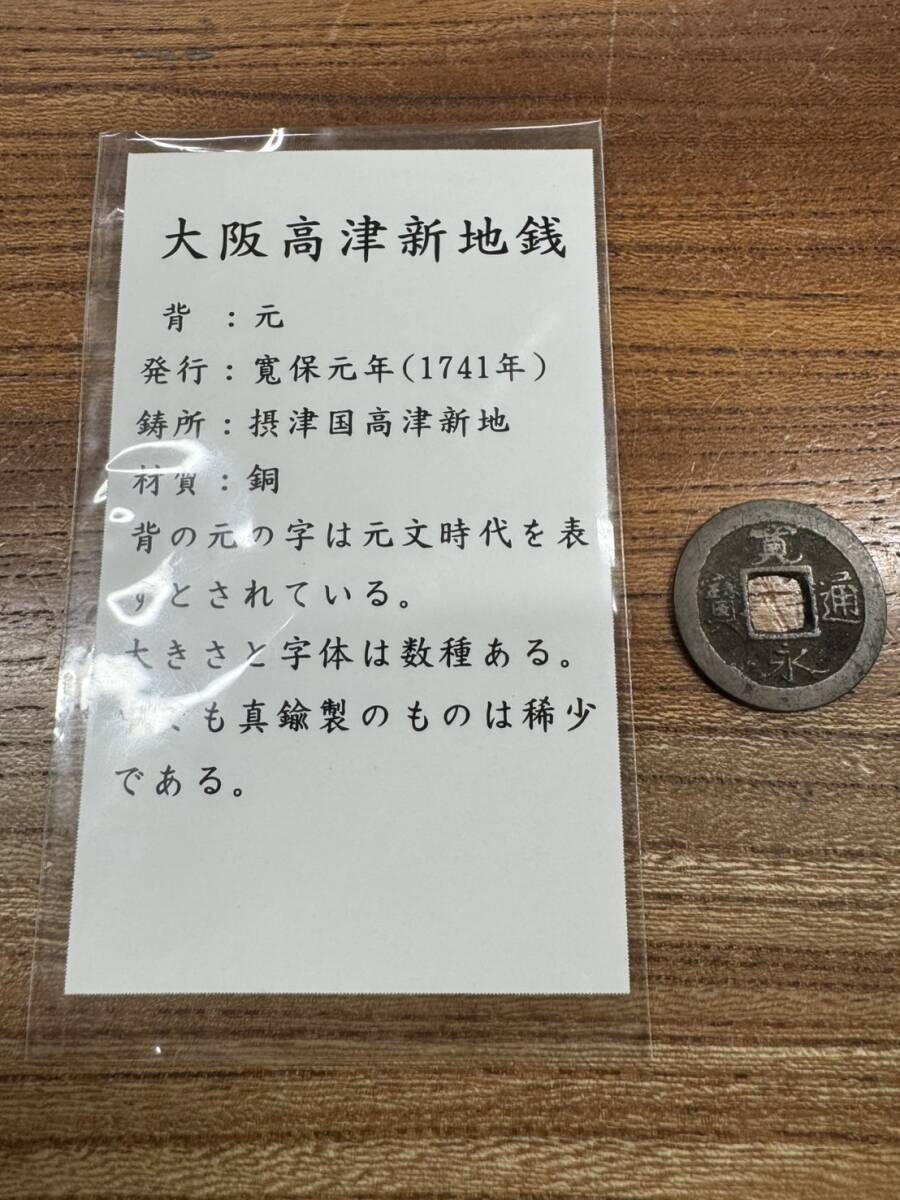 大阪高津新地銭
背 : 元
発行 : 寛保元年(1741年)
鋳所 : 摂津国高津新地
材質 : 銅
背の元の字は元文時代を表
すとされている。
大きさと字体は数種ある。
も真鍮製のものは稀少
である。
寛
永
通
寳